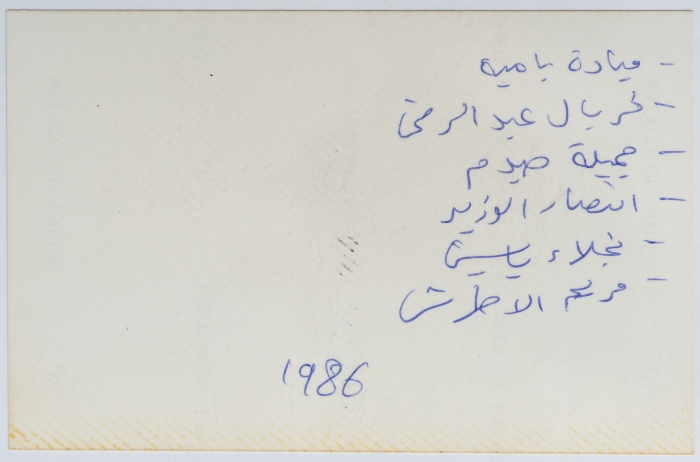 - ميادة بامية
- فريال عبد الرحمن
- جميلة صيدم
- انتصار الوزير
- نجلاء ياسين
- مريم الاطرش
1986